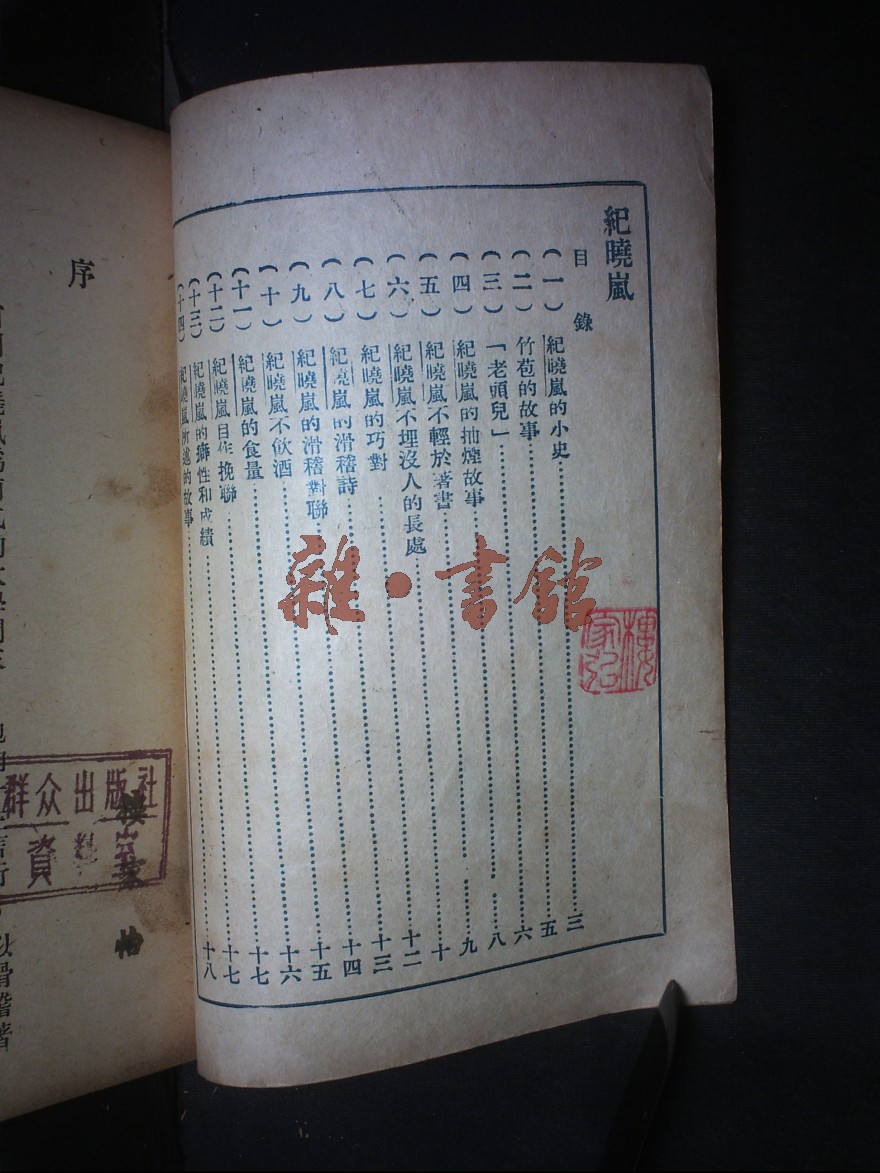 紀曉嵐
目錄
(一) 紀曉嵐的小史……三
(二) 竹苞的故事……五
(三) 「老頭兒」……六
(四) 紀曉嵐的抽煙故事……八
(五) 紀曉嵐不輕於著書……九
(六) 紀曉嵐不埋沒人的長處……十
(七) 紀曉嵐的巧對……十二
(八) 紀曉嵐的滑稽詩……十三
(九) 紀曉嵐的滑稽對聯……十四
(十) 紀曉嵐不飲酒……十五
(十一) 紀曉嵐的食量……十六
(十二) 紀曉嵐自作挽聯……十七
(十三) 紀曉嵐的癖性和成績……十七
(十四) 紀曉嵐所述的故事……十八
雜·書館
序
群众出版社
資料